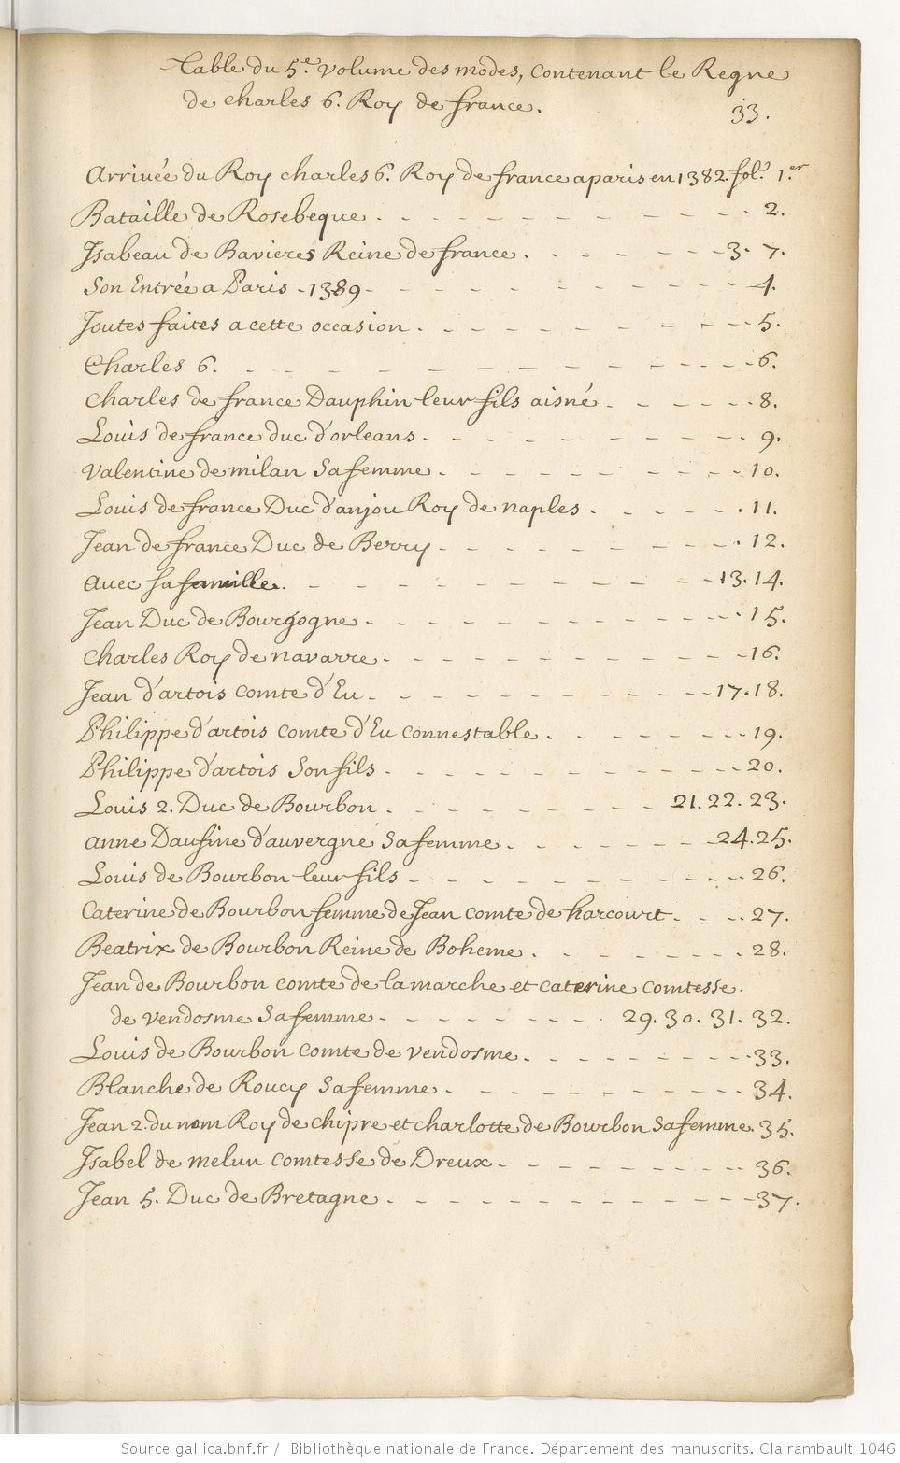 Table du 5.e volume des modes, contenant le Regne
de charles 6. Roy de france.
33.
Arrivée du Roy charles 6. Roy de france a paris en 1382. fol.° 1.er
Bataille de Rosebeque. - - - - - - - - - - - 2.
Jsabeau de Bavieres Reine de france. - - - - - - 3. 7.
Son Entrée a Paris - 1389 - - - - - - - - - - - 4.
Joutes faites a cette occasion. - - - - - - - - - 5.
Charles 6. - - - - - - - - - - - - - 6.
Charles de france Dauphin leur fils aisné. - - - - - 8.
Louis de france duc d'orleans. - - - - - - - - 9.
Valentine de milan Sa femme. - - - - - - - - 10.
Louis de france Duc d'anjou Roy de naples. - - - - 11.
Jean de france Duc de Berry. - - - - - - - - 12.
avec sa famille. - - - - - - - - - - 13. 14.
Jean Duc de Bourgogne. - - - - - - - - - - 15.
Charles Roy de navarre. - - - - - - - - - - 16.
Jean d'artois comte d'Eu. - - - - - - - - - 17. 18.
Philippe d'artois comte d'Eu connestable. - - - - - - 19.
Philippe d'artois Son fils. - - - - - - - - - - 20.
Louis 2. Duc de Bourbon. - - - - - - - - 21. 22. 23.
anne Daufine d'auvergne Sa femme. - - - - - - 24. 25.
Louis de Bourbon leur fils - - - - - - - - - 26.
Caterine de Bourbon femme de Jean comte de harcourt. - - - 27.
Beatrix de Bourbon Reine de Boheme. - - - - - - 28.
Jean de Bourbon comte de la marche et caterine comtesse.
de vendosme Sa femme. - - - - - - - 29. 30. 31. 32.
Louis de Bourbon comte de vendosme. - - - - - - - 33.
Blanche de Roucy Sa femme. - - - - - - - - 34.
Jean 2. du nom Roy de chipre et charlotte de Bourbon Sa femme. 35.
Jsabel de melun comtesse de Dreux. - - - - - - - 36.
Jean 5. Duc de Bretagne. - - - - - - - - - - 37.
Source gallica.bnf.fr / Bibliothèque nationale de France. Département des manuscrits. Clairambault 1046